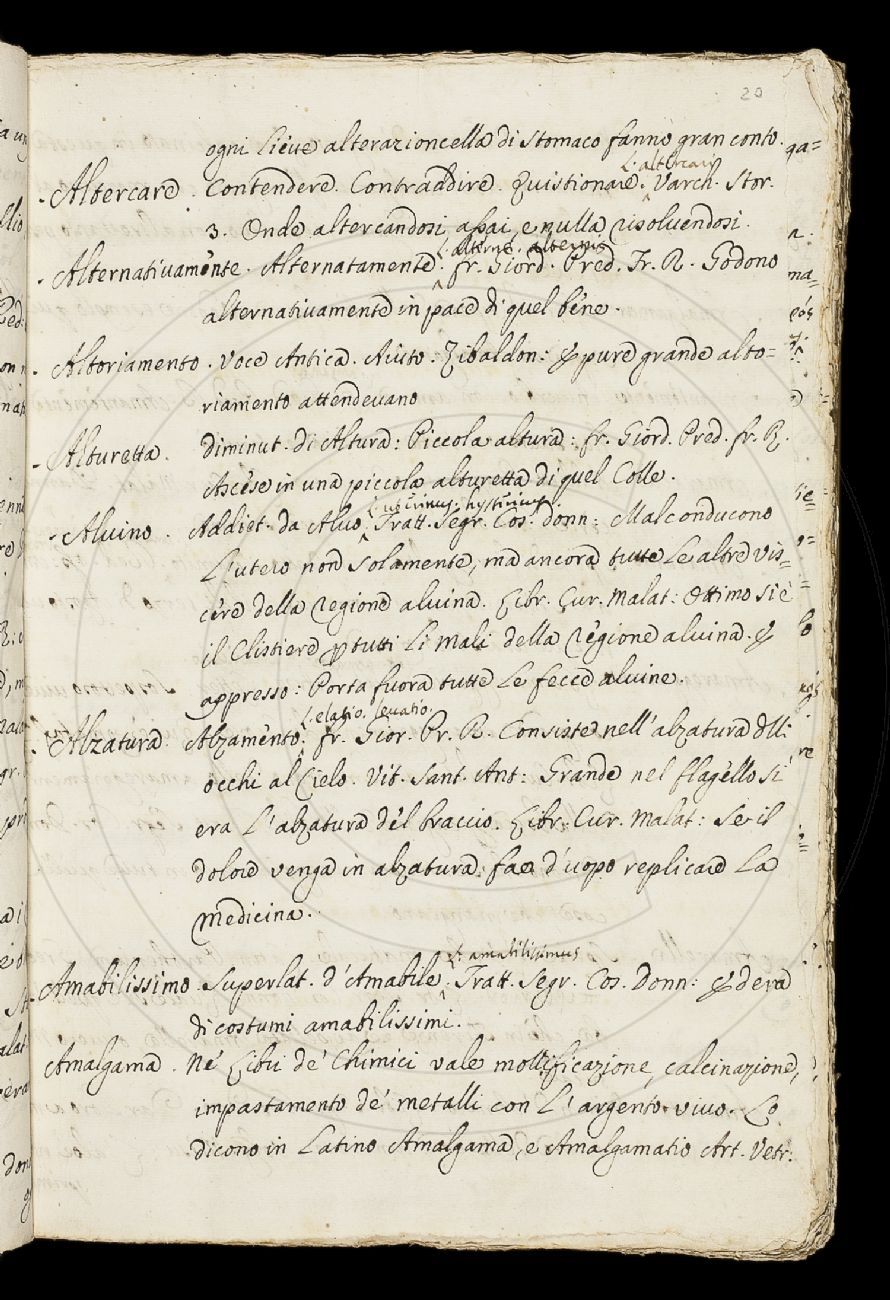 20
ogni lieue alterazioncella di stomaco fanno gran conto.
L. altercari
Altercare. Contendere. Contraddire. Quistionare. Varch. Stor.
3. Onde altercandosi assai, e nulla risoluendosi.
L. alterne, alternis
Alternatiuamente. Alternatamente. fr. Giord. Pred. Fr. R. Godono
alternatiuamente in pace di quel bene.
Altoriamento. Voce Antica. Aiuto. Zibaldon: E pure grande alto=
riamento attendeuano
Alturetta. diminut. di Altura: Piccola altura: fr. Giord. Pred. fr. R.
Ascese in una piccola alturetta di quel Colle.
L. uterinus, hystericus
Aluino. Addiet. da Aluo. Tratt. Segr. Cos. donn: Mal conducono
l'utero non solamente, ma ancora tutte le altre vis=
cere della regione aluina. Libr. Cur. Malat: Ottimo si è
il Clistiere p tutti li mali della regione aluina. E
appresso: Porta fuora tutte le fecce aluine.
L. elatio, leuatio.
Alzatura. Alzamento. fr. Gior. Pr. R. Consiste nell'alzatura dlli
occhi al Cielo. Vit. Sant. Ant: Grande nel flagello si
era l'alzatura del braccio. Libr. Cur. Malat: Se il
dolore venga in alzatura, fa d'uopo replicare la
medicina.
L. amabilissimus
Amabilissimo. Superlat. d'Amabile. Tratt. Segr. Cos. Donn: E d era
di costumi amabilissimi.
Amalgama. Ne' Libri de' Chimici vale mollificazione, calcinazione,
impastamento de' metalli con l'argento viuo. Lo
dicono in Latino Amalgama, e Amalgamatio Art. Vetr.